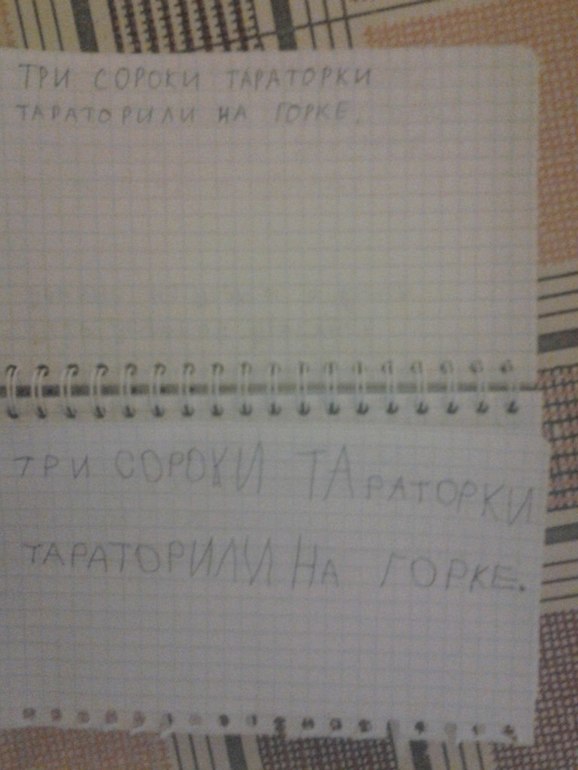 ТРИ СОРОКИ ТАРАТОРКИ
ТАРАТОРИЛИ НА ГОРКЕ.
ТРИ СОРОКИ ТАРАТОРКИ
ТАРАТОРИЛИ НА ГОРКЕ.